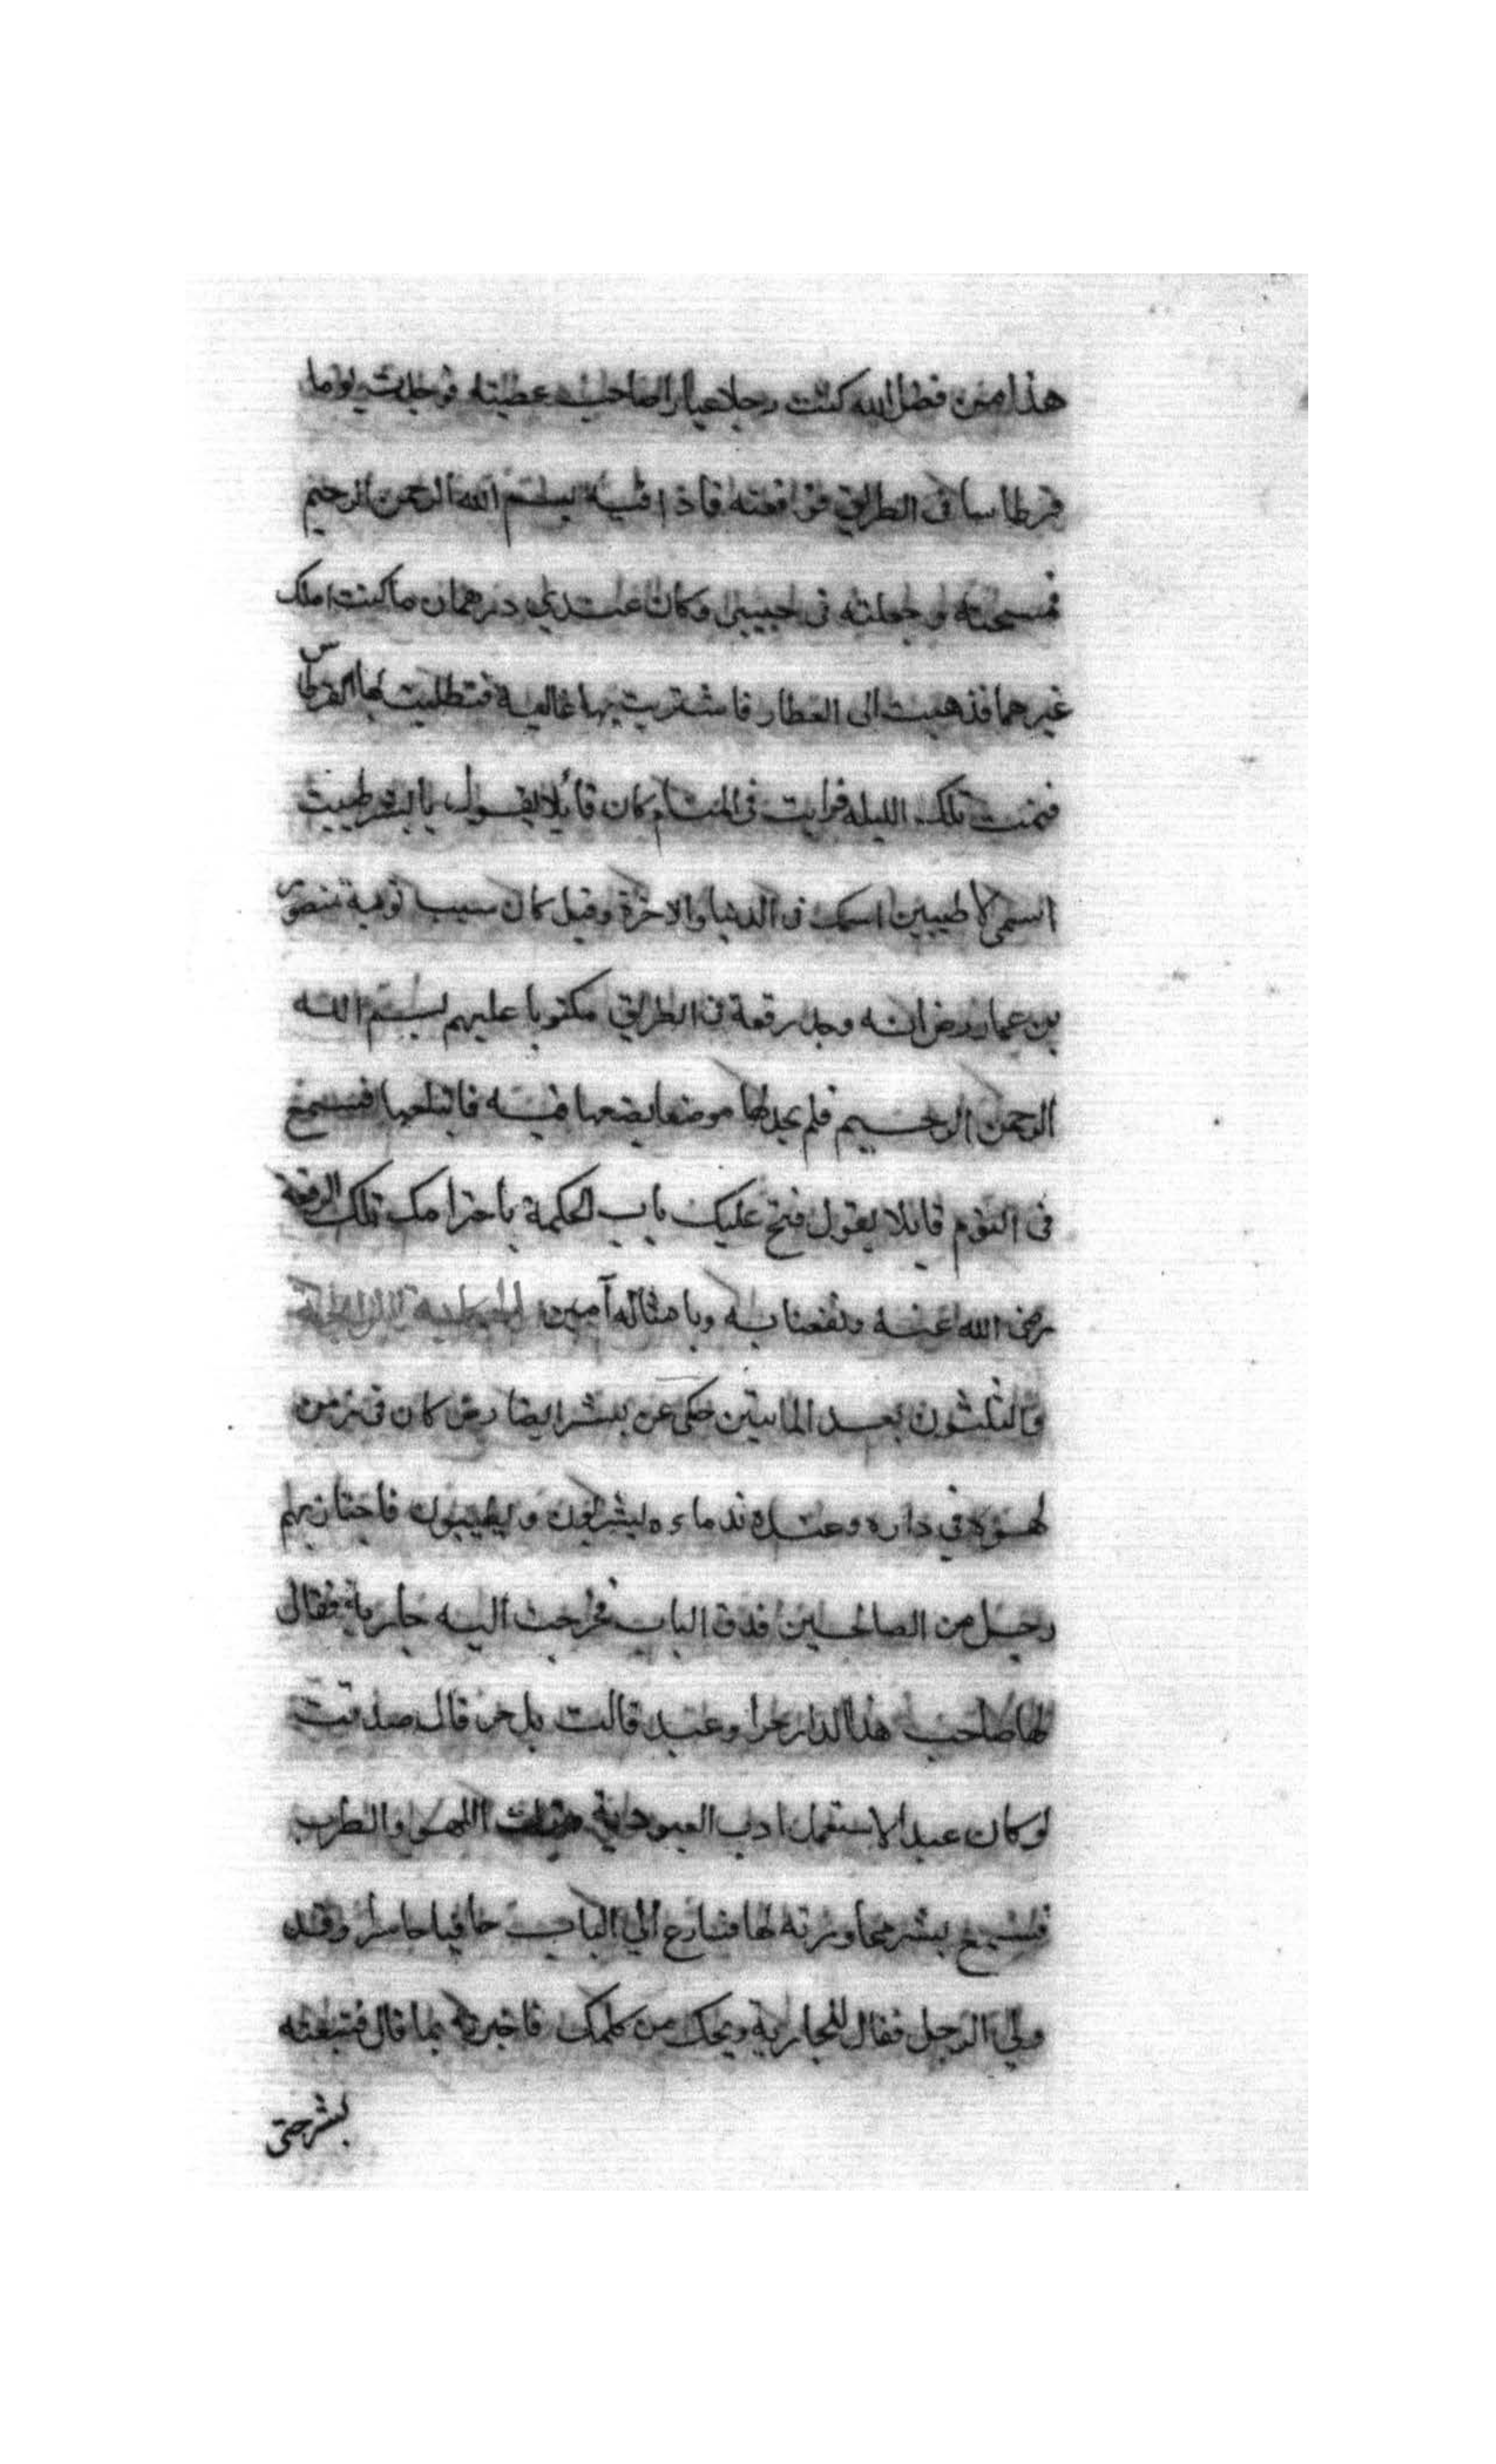 هذا من فضل الله كنت رجلا عيارا صاحب عصيته فوجدت يوما
قرطاسا فى الطريق فرافعته فاذا فيه بسم الله الرحمن الرحيم
فمسحته وجعلته فى جيبى وكان عندي درهمان ما كنت املك
غيرهما فذهبت الى العطار فاشتريت بها غالية فتطليت بها القرطاس
فنمت تلك الليله فرايت فى المنام كان قائلا يقول يا بشر طيبت
اسمى لاطيبن اسمك فى الدنيا والاخرة وقيل كان سبب توبة منصور
بن عمار رض انه وجد رقعة فى الطريق مكتوبا عليهم بسم الله
الرحمن الرحيم فلم يجد لها موضعا يضعها فيه فابتلعها فسمع
فى النوم قايلا يقول فتح عليك باب الحكمة باحترامك تلك الرقعة
رضى الله عنه ونفعنا به وبامثاله آمين
والثلثون بعد المايتين حكى عن بشر ايضا رض كان فى زمن
لهوه في داره وعنده ندماءه يشربون ويطيبون فاجتاز بهم
رجل من الصالحين فدق الباب فخرجت اليه جارية فقال
لها صاحب هذا الدار حرا وعبد قالت بل حر قال صدقت
لو كان عبدا لاستعمل ادب العبودية اللهو والطرب
فسمع بشر محاورته لها فسارع الي الباب حافيا حاسرا وقد
ولي الرجل فقال للجارية ويحك من كلمك فاخبرته بما قال فتبعته
بشر حتى